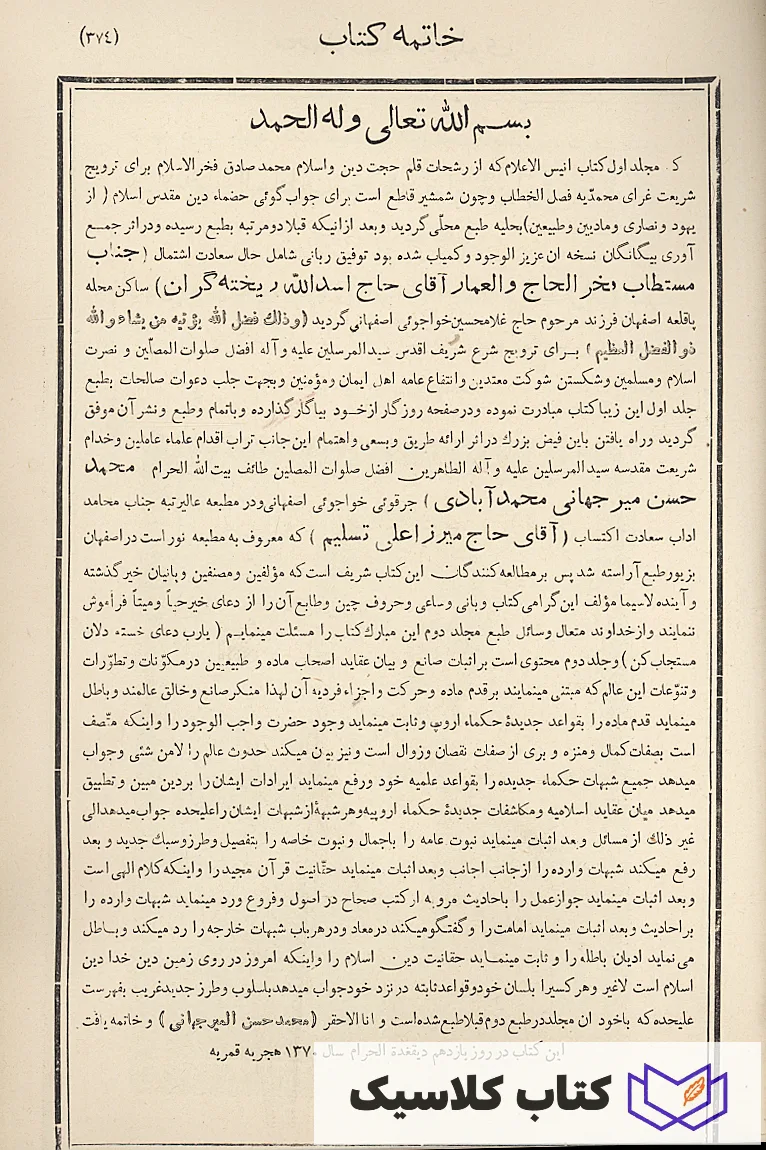 خاتمه کتاب
(٣٧٤)
بسم الله تعالی وله الحمد
مجلد اول کتاب انیس الاعلام که از رشحات قلم حجت دین واسلام محمد صادق فخرالاسلام برای ترویج
شریعت غرای محمدّیه فصل الخطاب وچون شمشیر قاطع است برای جواب‌گوئی خصماء دین مقدس اسلام ( از
یهود ونصاری ومادیین وطبیعین)بحلیه طبع محلّی گردید وبعد ازانیکه قبلا دومرتبه بطبع رسیده ودراثر جمــع
آوری بیگانگان نسخه ان عزیز الوجود وکمیاب شده بود توفیق ربانی شامل حال سعادت اشتمال (جناب
مستطاب فخر الحاج والعمار آقای حاج اسدالله ریخته‌گران) ساکن محله
باقلعه اصفهان فرزند مرحوم حاج غلامحسین خواجوئی اصفهانی گردید (وذلك فضل الله یؤتیه من یشاء والله
ذوالفضل العظیم ) بــرای ترویج شرع شریف اقدس سیدالمرسلین علیه وآله افضل صلوات المصلّین و نصرت
اسلام ومسلمین وشکستن شوکت معتدین وانتفاع عامه اهل ایمان ومؤمنین وبجهت جلب دعوات صالحات بطبع
جلد اول این زیبا کتاب مبادرت نموده ودرصفحه روزگار ازخــود بیاگار گذارده وباتمام وطبع ونشر آن موفق
گردید وراه یافتن باین فیض بزرك دراثر ارائه طریق وبسعی واهتمام این جانب تراب اقدام علماء عاملین وخدام
شریعت مقدسه سیدالمرسلین علیه وآله الطاهرین افضل صلوات المصلین طائف بیت الله الحرام محمد
حسن میرجهانی محمدآبادی ) جرقوئی خواجوئی اصفهانی ودر مطبعه عالیرتبه جناب محامد
اداب سعادت اکتساب (آقای حاج میرزاعلی تسلیم ) که معروف به مطبعه نور است دراصفهان
بزیورطبع آراسته شد پس برمطالعه کنندگان این کتاب شریف است که مؤلفین ومصنفین وبانیان خیر گذشته
وآینده لاسیما مؤلف این گرامی کتاب وبانی وساعی وحروف چین وطابع آن را از دعای خیرحیاً ومیتاً فراموش
ننمایند وازخداوند متعال وسائل طبع مجلد دوم این مبارك کتاب را مسئلت مینمایم ( یارب دعای خسته دلان
مستجاب کن ) وجلد دوم محتوی است براثبات صانع و بیان عقاید اصحاب ماده و طبیعیین درمکوّنات وتطوّرات
وتنوّعات این عالم که مبتنی مینمایند برقدم ماده وحرکت واجزاء فردیه آن لهذا منکر صانع وخالق عالمند وباطل
مینماید قدم ماده را بقواعد جدیدۀ حکماء اروپ وثابت مینماید وجود حضرت واجب الوجود را واینکه متّصف
است بصفات کمال ومنزه و بری از صفات نقصان وزوال است ونیز بیان میکند حدوث عالم را لامن شئی وجواب
میدهد جمیع شبهات حکماء جدیده را بقواعد علمیه خود ورفع مینماید ایرادات ایشان را بردین مبین وتطبیق
میدهد میان عقاید اسلامیه ومکاشفات جدیدۀ حکماء اروپیه وهر شبهۀ از شبهات ایشان را علیحده جواب میدهد الی
غیر ذلك از مسائل وبعد اثبات مینماید نبوت عامه را باجمال ونبوت خاصه را بتفصیل وطرز وسبك جدید و بعد
رفع میکند شبهات وارده را ازجانب اجانب وبعد اثبات مینماید حقّانیت قرآن مجید را واینکه کلام الهی است
وبعد اثبات مینماید جوازعمل را باحادیث مرویه از کتب صحاح در اصول وفروع ورد مینماید شبهات وارده را
براحادیث وبعد اثبات مینماید امامت را وگفتگو میکند درمعاد ودرهرباب شبهات خارجه را رد میکند وبــاطل
می نماید ادیان باطله را و ثابت مینمــاید حقانیت دین اسلام را واینکه امروز در روی زمین دین خدا دین
اسلام است لاغیر وهر کسیرا بلسان خودوقواعدثابته در نزد خودجواب میدهدباسلوب وطرز جدیدغریب بفهرست
علیحده که باخود ان مجلددرطبع دوم قبلاطبع شده است و انا الاحقر (محمدحسن المیرجهانی ) و خاتمه یافت
این کتاب در روز یازدهم ذیقعدة الحرام سال ١٣٧٠ هجریه قمریه
کتاب کلاسیک